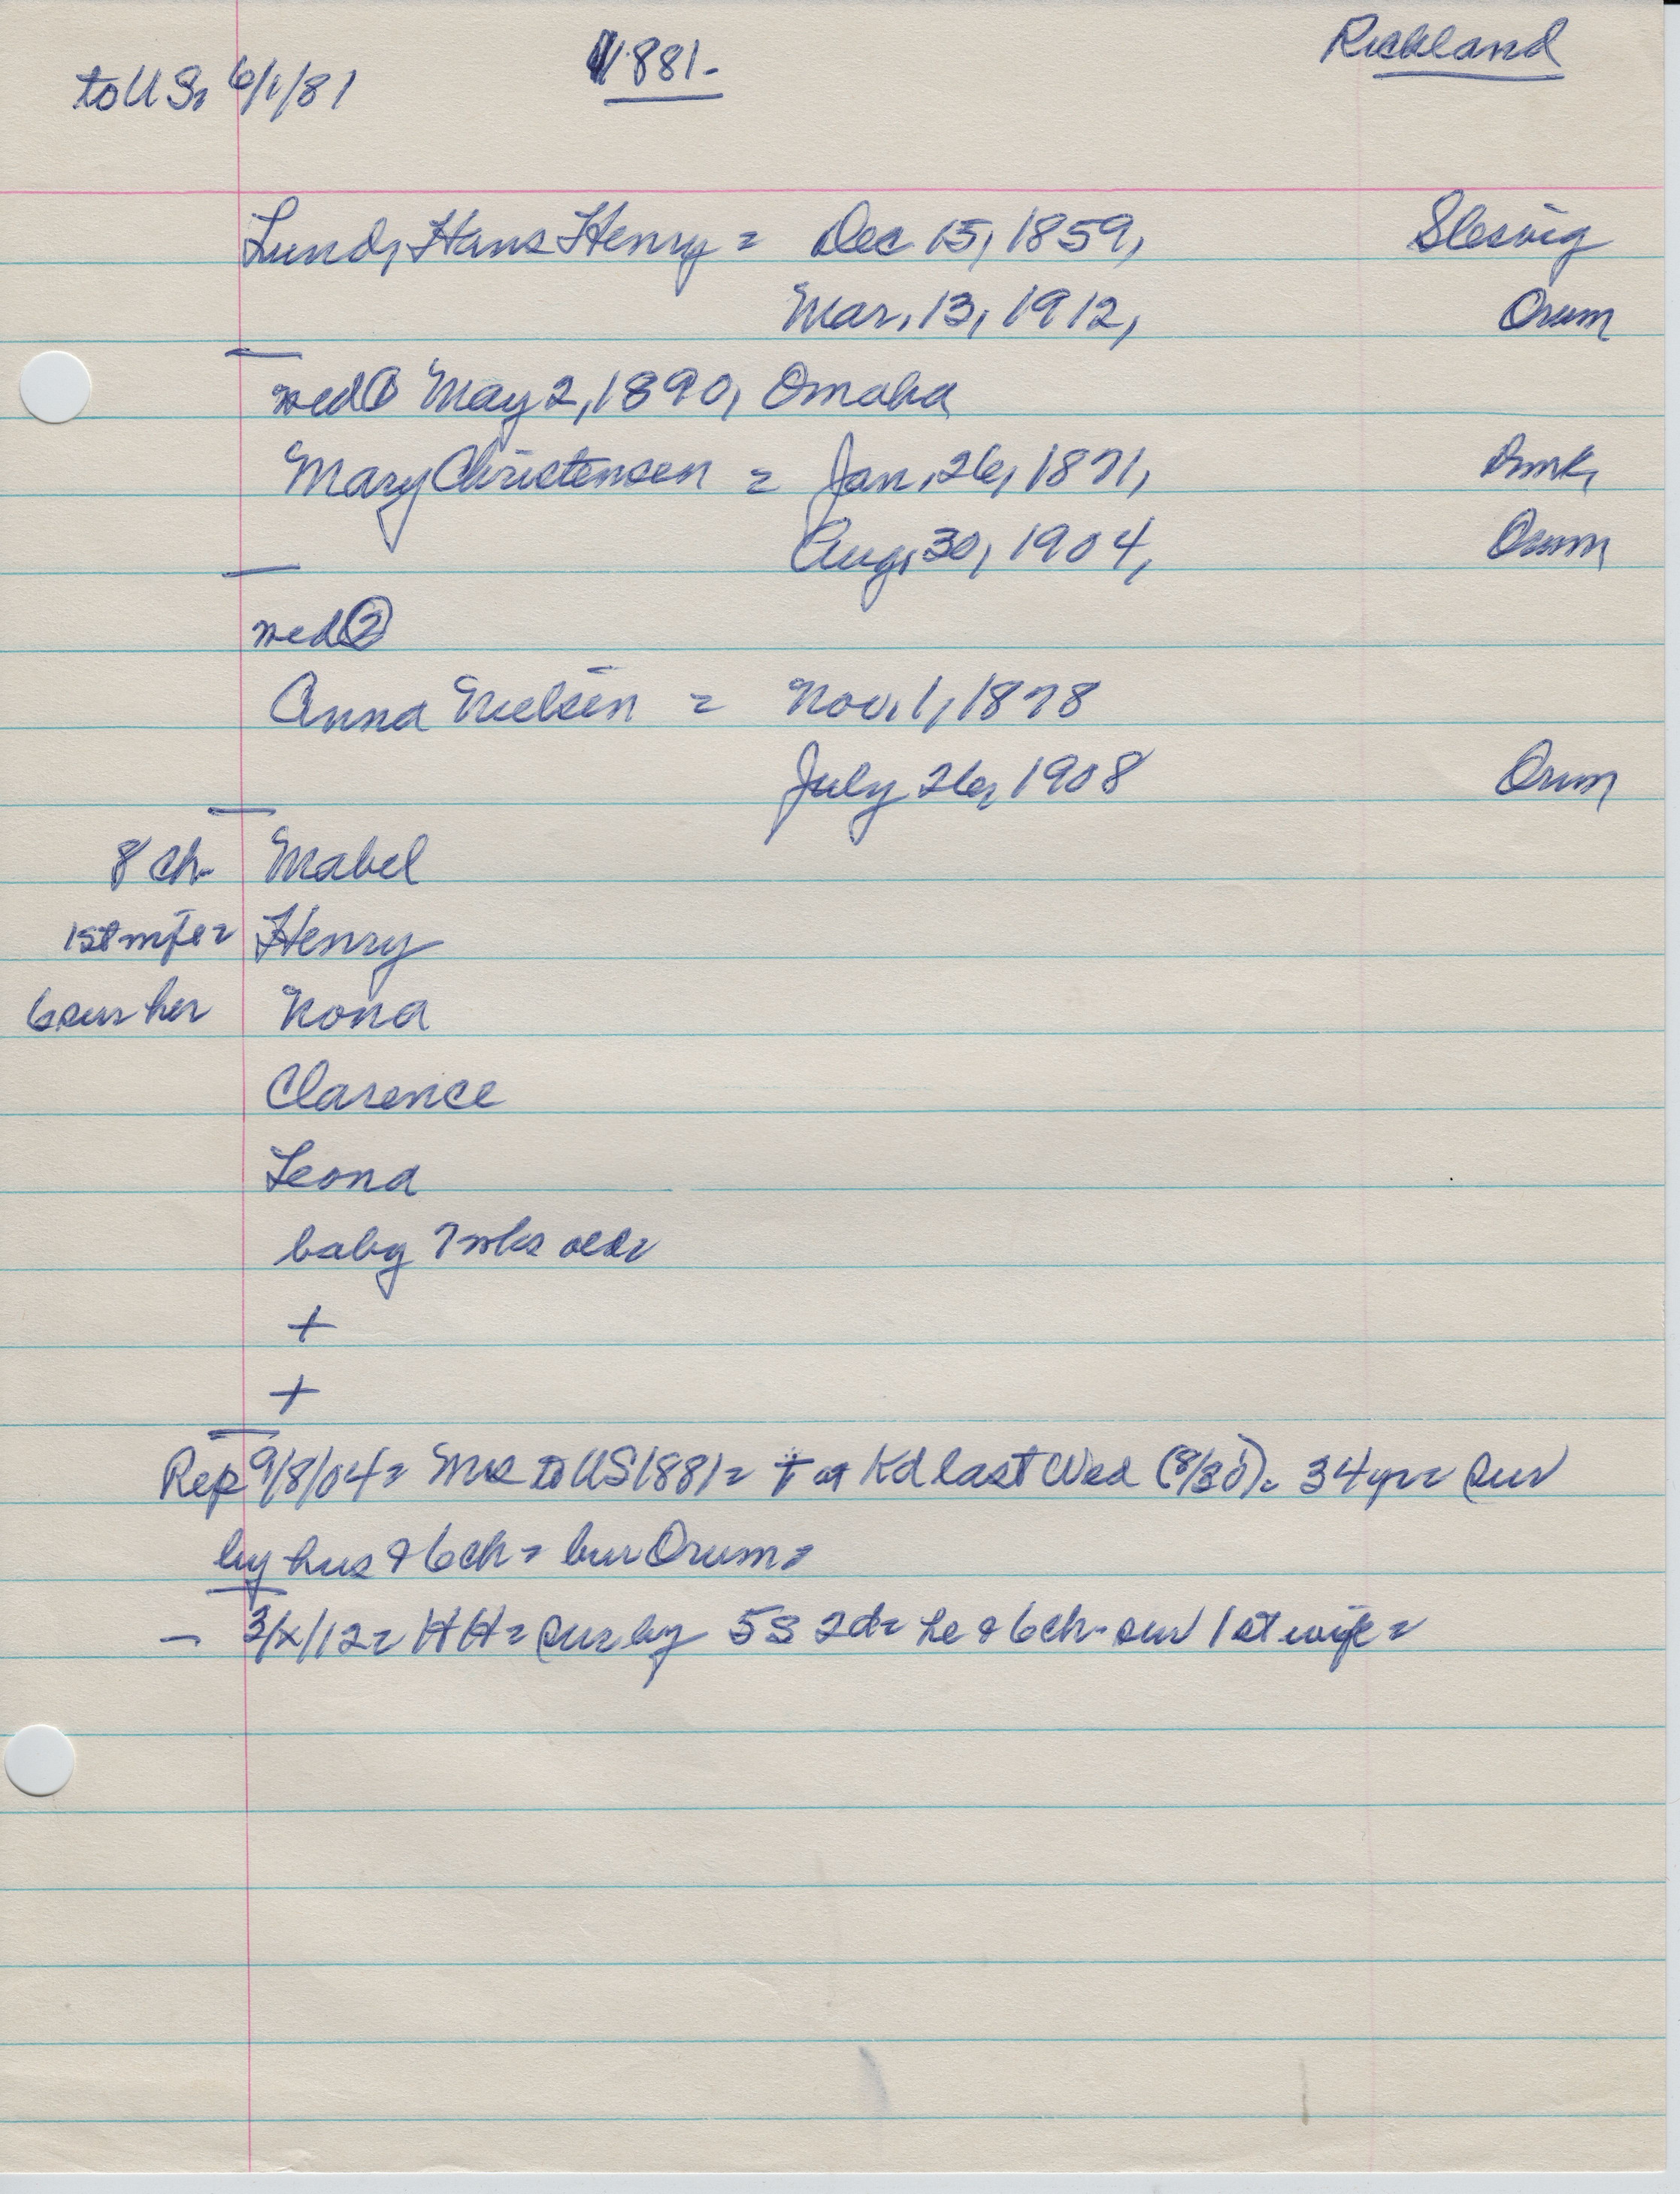 to US. 6/1/81 1881- Richland
Lund, Hans Henry = Dec 15, 1859, Slesvig
Mar. 13, 1912, Orum
wed ① May 2, 1890, Omaha
Mary Christensen = Jan. 26, 1871, Dmk,
Aug. 30, 1904, Orum
wed ②
Anna Nielsen = Nov. 1, 1878
July 26, 1908 Orum
8 ch- Mabel
1st wife = Henry
6 sur her Nona
Clarence
Leona
baby 7 wks old=
+
+
Rep 9/8/04 = Mrs to US 1881 = + at Kd last Wed (8/30). 34 yr = sur
by hus & 6 ch = bur Orum =
— 3/x/12 = HH = sur by 5s 2d = he & 6 ch - sur 1st wife =